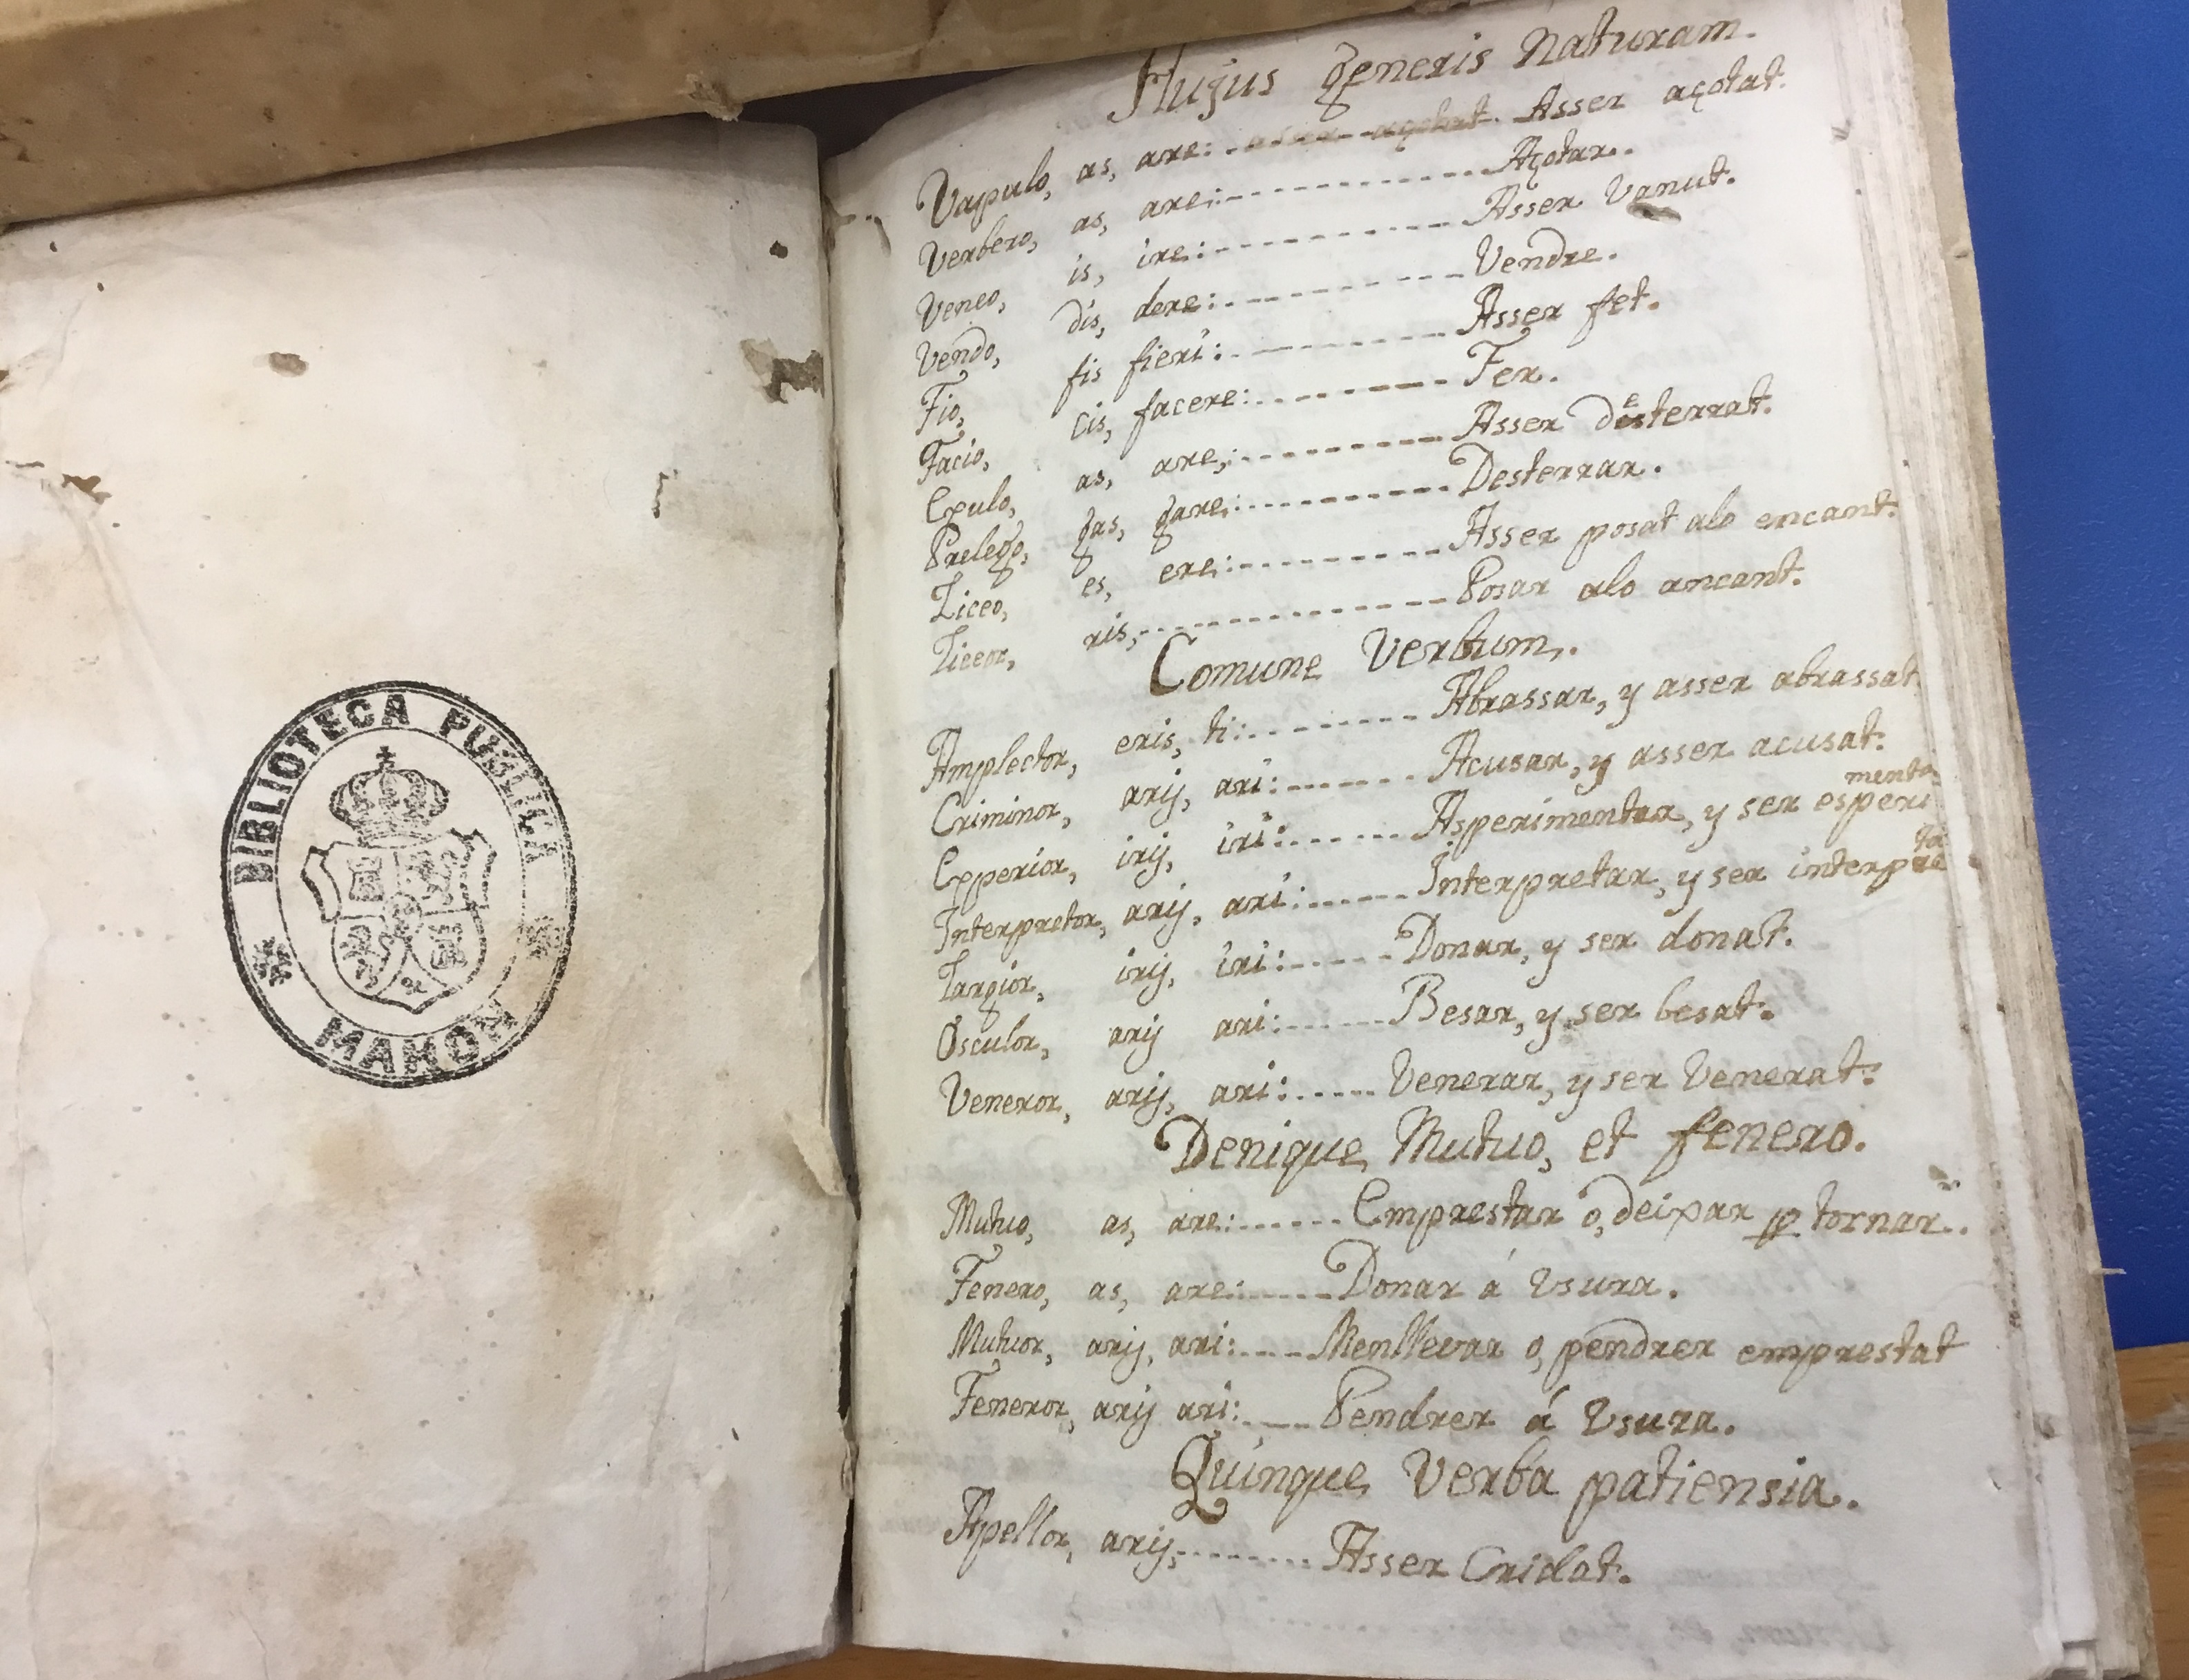 BIBLIOTECA PUBLICA
MAHON
Hujus generis Naturam.
Vapulo, as, are: Asser açotat.
Verbero, as, are: Açotar.
Veneo, is, ire: Asser Vanut.
Vendo, dis, dere: Vendre.
Fio, fis fieri: Asser fet.
Facio, cis, facere: Fer.
Expulo, as, are: Asser desterrat.
Prelego, gas, gare: Desterrar.
Liceo, es, ere: Asser posat alo encant.
Liceor, ris, Posar alo ancant.
Comune Verbum.
Amplector, eris, ti: Abrassar, y asser abrassat
Criminor, arij, ari: Acusar, y asser acusat.
Expperior, irij, iri: Asperimentar, y ser esperi
menta
Interpretor, arij, ari: Interpretar, y ser interpre
ta
Largior, irij, iri: Donar, y ser donat.
Osculor, arij ari: Besar, y ser besat.
Veneror, arij, ari: Venerar, y ser Venerat:
Denique Mutuo, et fenero.
Mutuo, as, are: Emprestar o, deixar p tornar.
Fenero, as, are: Donar á Vsura.
Mutuor, arij, ari: Menllevar o, pendrer emprestat
Feneror, arij ari: Pendrer á Vsura.
Quinque Verba patiensia.
Apellor, arij, Asser Cridat.